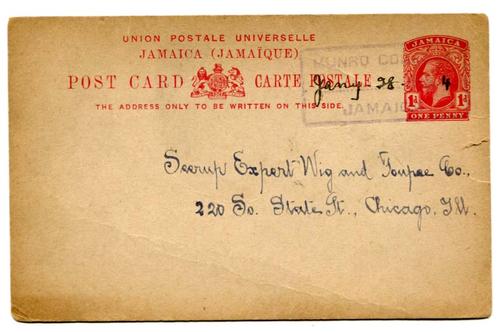 UNION POSTALE UNIVERSELLE
JAMAICA (JAMAÏQUE)
POST CARD CARTE POSTALE
THE ADDRESS ONLY TO BE WRITTEN ON THIS SIDE.
MUNRO CO
Jan'y 28 - 4
JAMAIC
JAMAICA
1D 1D
ONE PENNY
Seerup Expert Wig and Toupee Co.,
220 So. State St., Chicago, Ill.